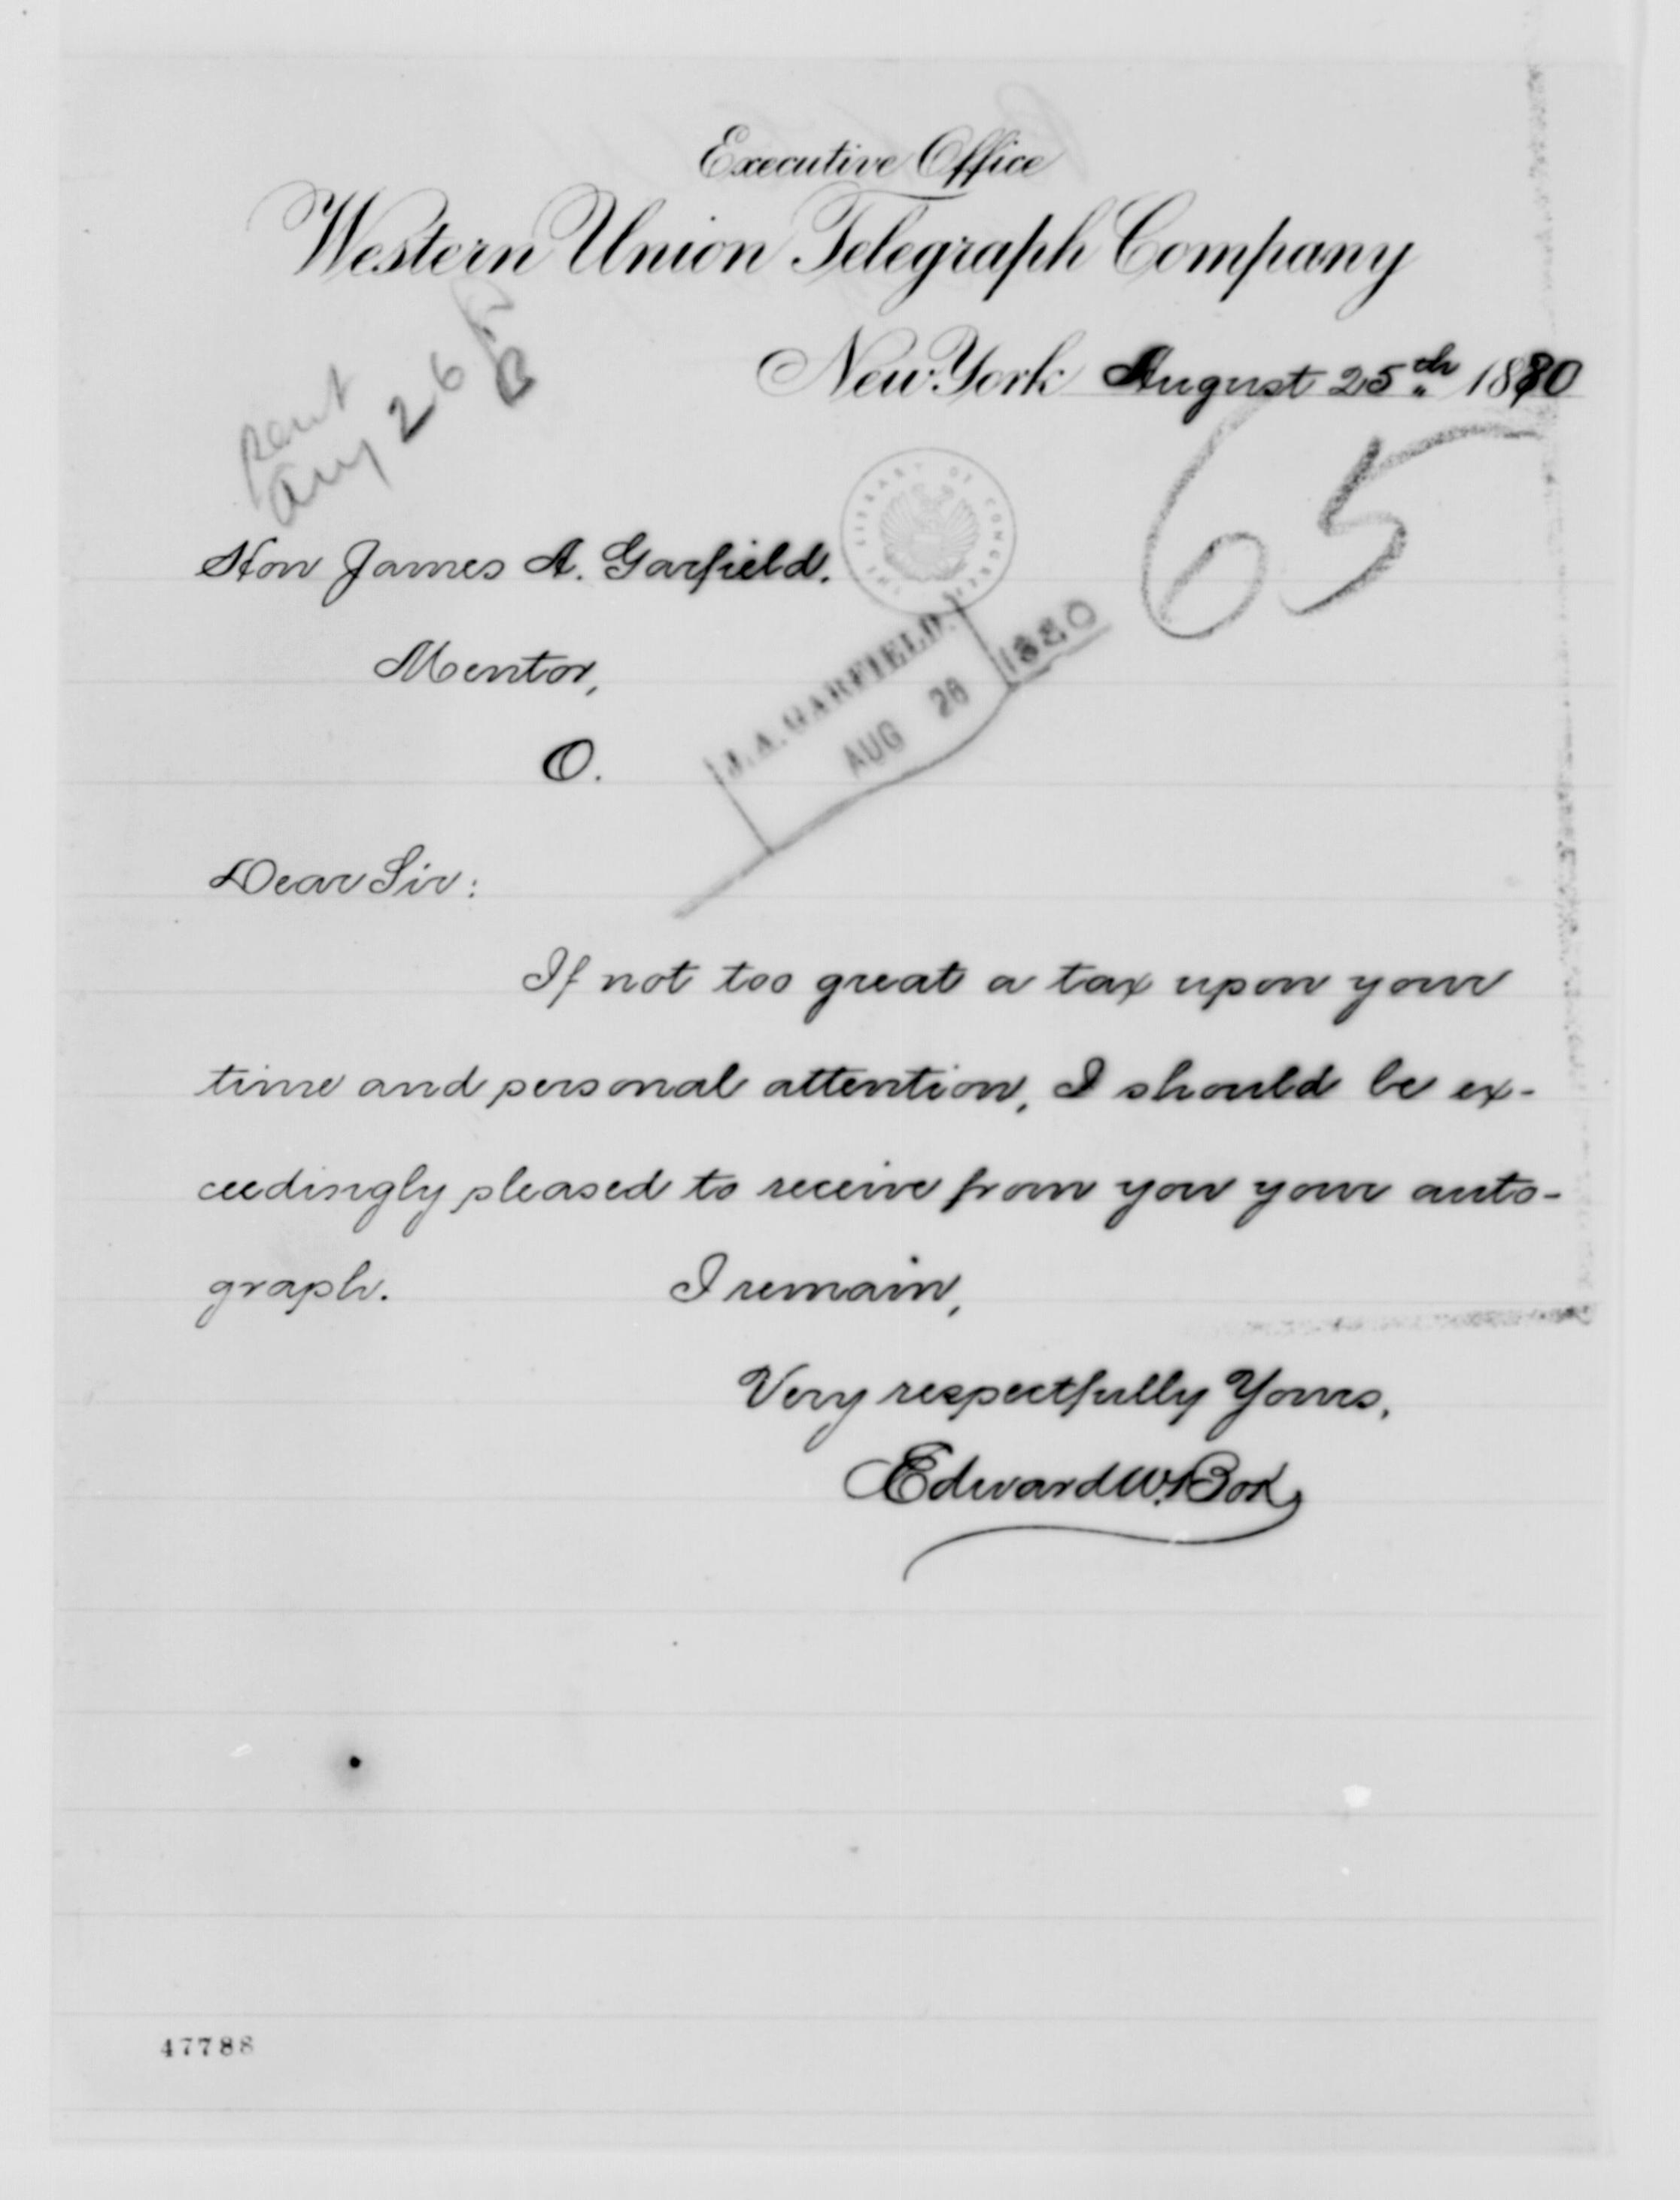 Executive Office
Western Union Telegraph Company
New York August 25th 1880
Aug 26
65
Hon James A. Garfield.
THE LIBRARY OF CONGRESS
Mentor,
J. A. GARFIELD.
AUG 26 1880
O.
Dear Sir:
If not too great a tax upon your
time and personal attention, I should be ex-
ceedingly pleased to receive from you your auto-
graph. I remain,
Very respectfully Yours,
Edward W. Bok
47788